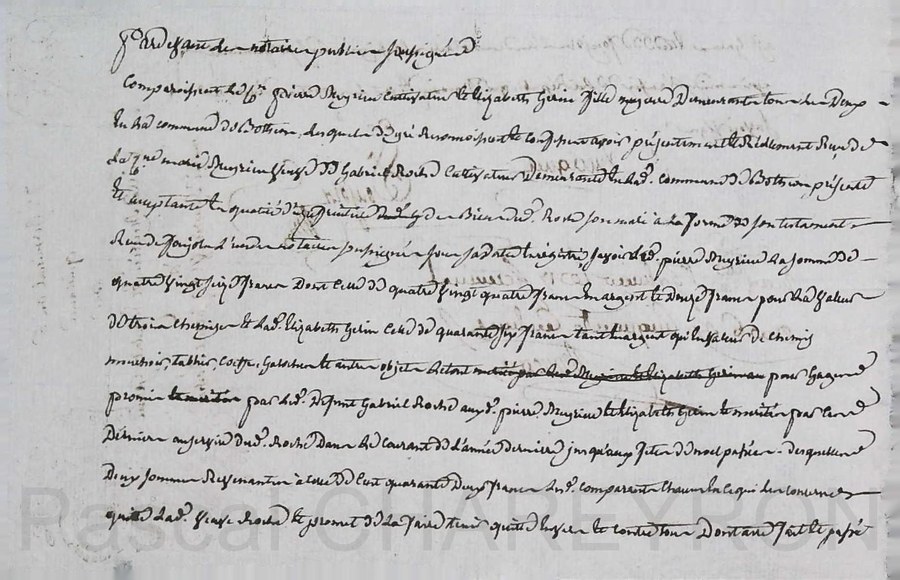 Pardevant les notaires publics soussignés
Comparoissent le Sr. pierre Meyrieu Cultivateur et Elizabeth Gerin fille majeure Demeurants tous les Deux
En la commune de Bothéon, lesquels de gré Reconnoissent et Confessent avoir présentement et Réellement Reçu de
La Cne. marie Meyrieu veuve de Gabriel Roche Cultivateur Demeurante En lad. commune de Bothéon présente
et acceptante En qualité d' des Biens dud. Roche son mari à la forme de son testament
Reçu de Jonjon l'un des notaires soussignés sous sa date Enregistré, savoir led. pierre Meyrieu la somme de
quatre vingt seize francs Dont Celle de quatre vingt quatre francs En argent et Douze francs pour la valeur
de trois chemises et lad. Elizabeth Gerin Celle de quarante six francs tant En argent qu'En valeur de chemises
mouchoirs, tablier, Coeffe, Galoches et autres objets le tout pour Gages
promis par led. Defunt Gabriel Roche auxd. pierre Meyrieu et Elizabeth Gerin et mérités par Ces
Derniers au service dud. Roche Dans le Courant de L'année Derniere jusqu'aux fetes de noel passées. desquelles
Deux sommes Revenantes à celle de Cent quarante Deux francs les d. comparants Chacun En ce qui les concerne
quitte lad. veuve Roche et promet de La faire tenir quitte Envers et contre tous Dont acte fait et passé
Pascal CHAREYRON